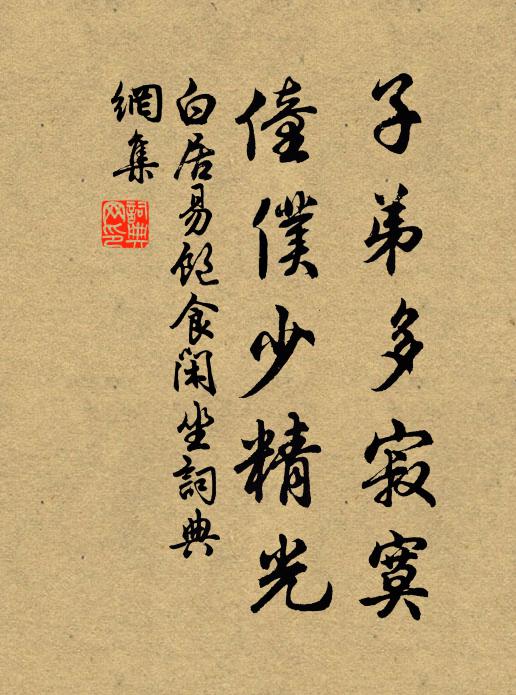 子弟多寂寞
僮僕少精光
白居易飽食閑坐詞典
網集
詞典
网印